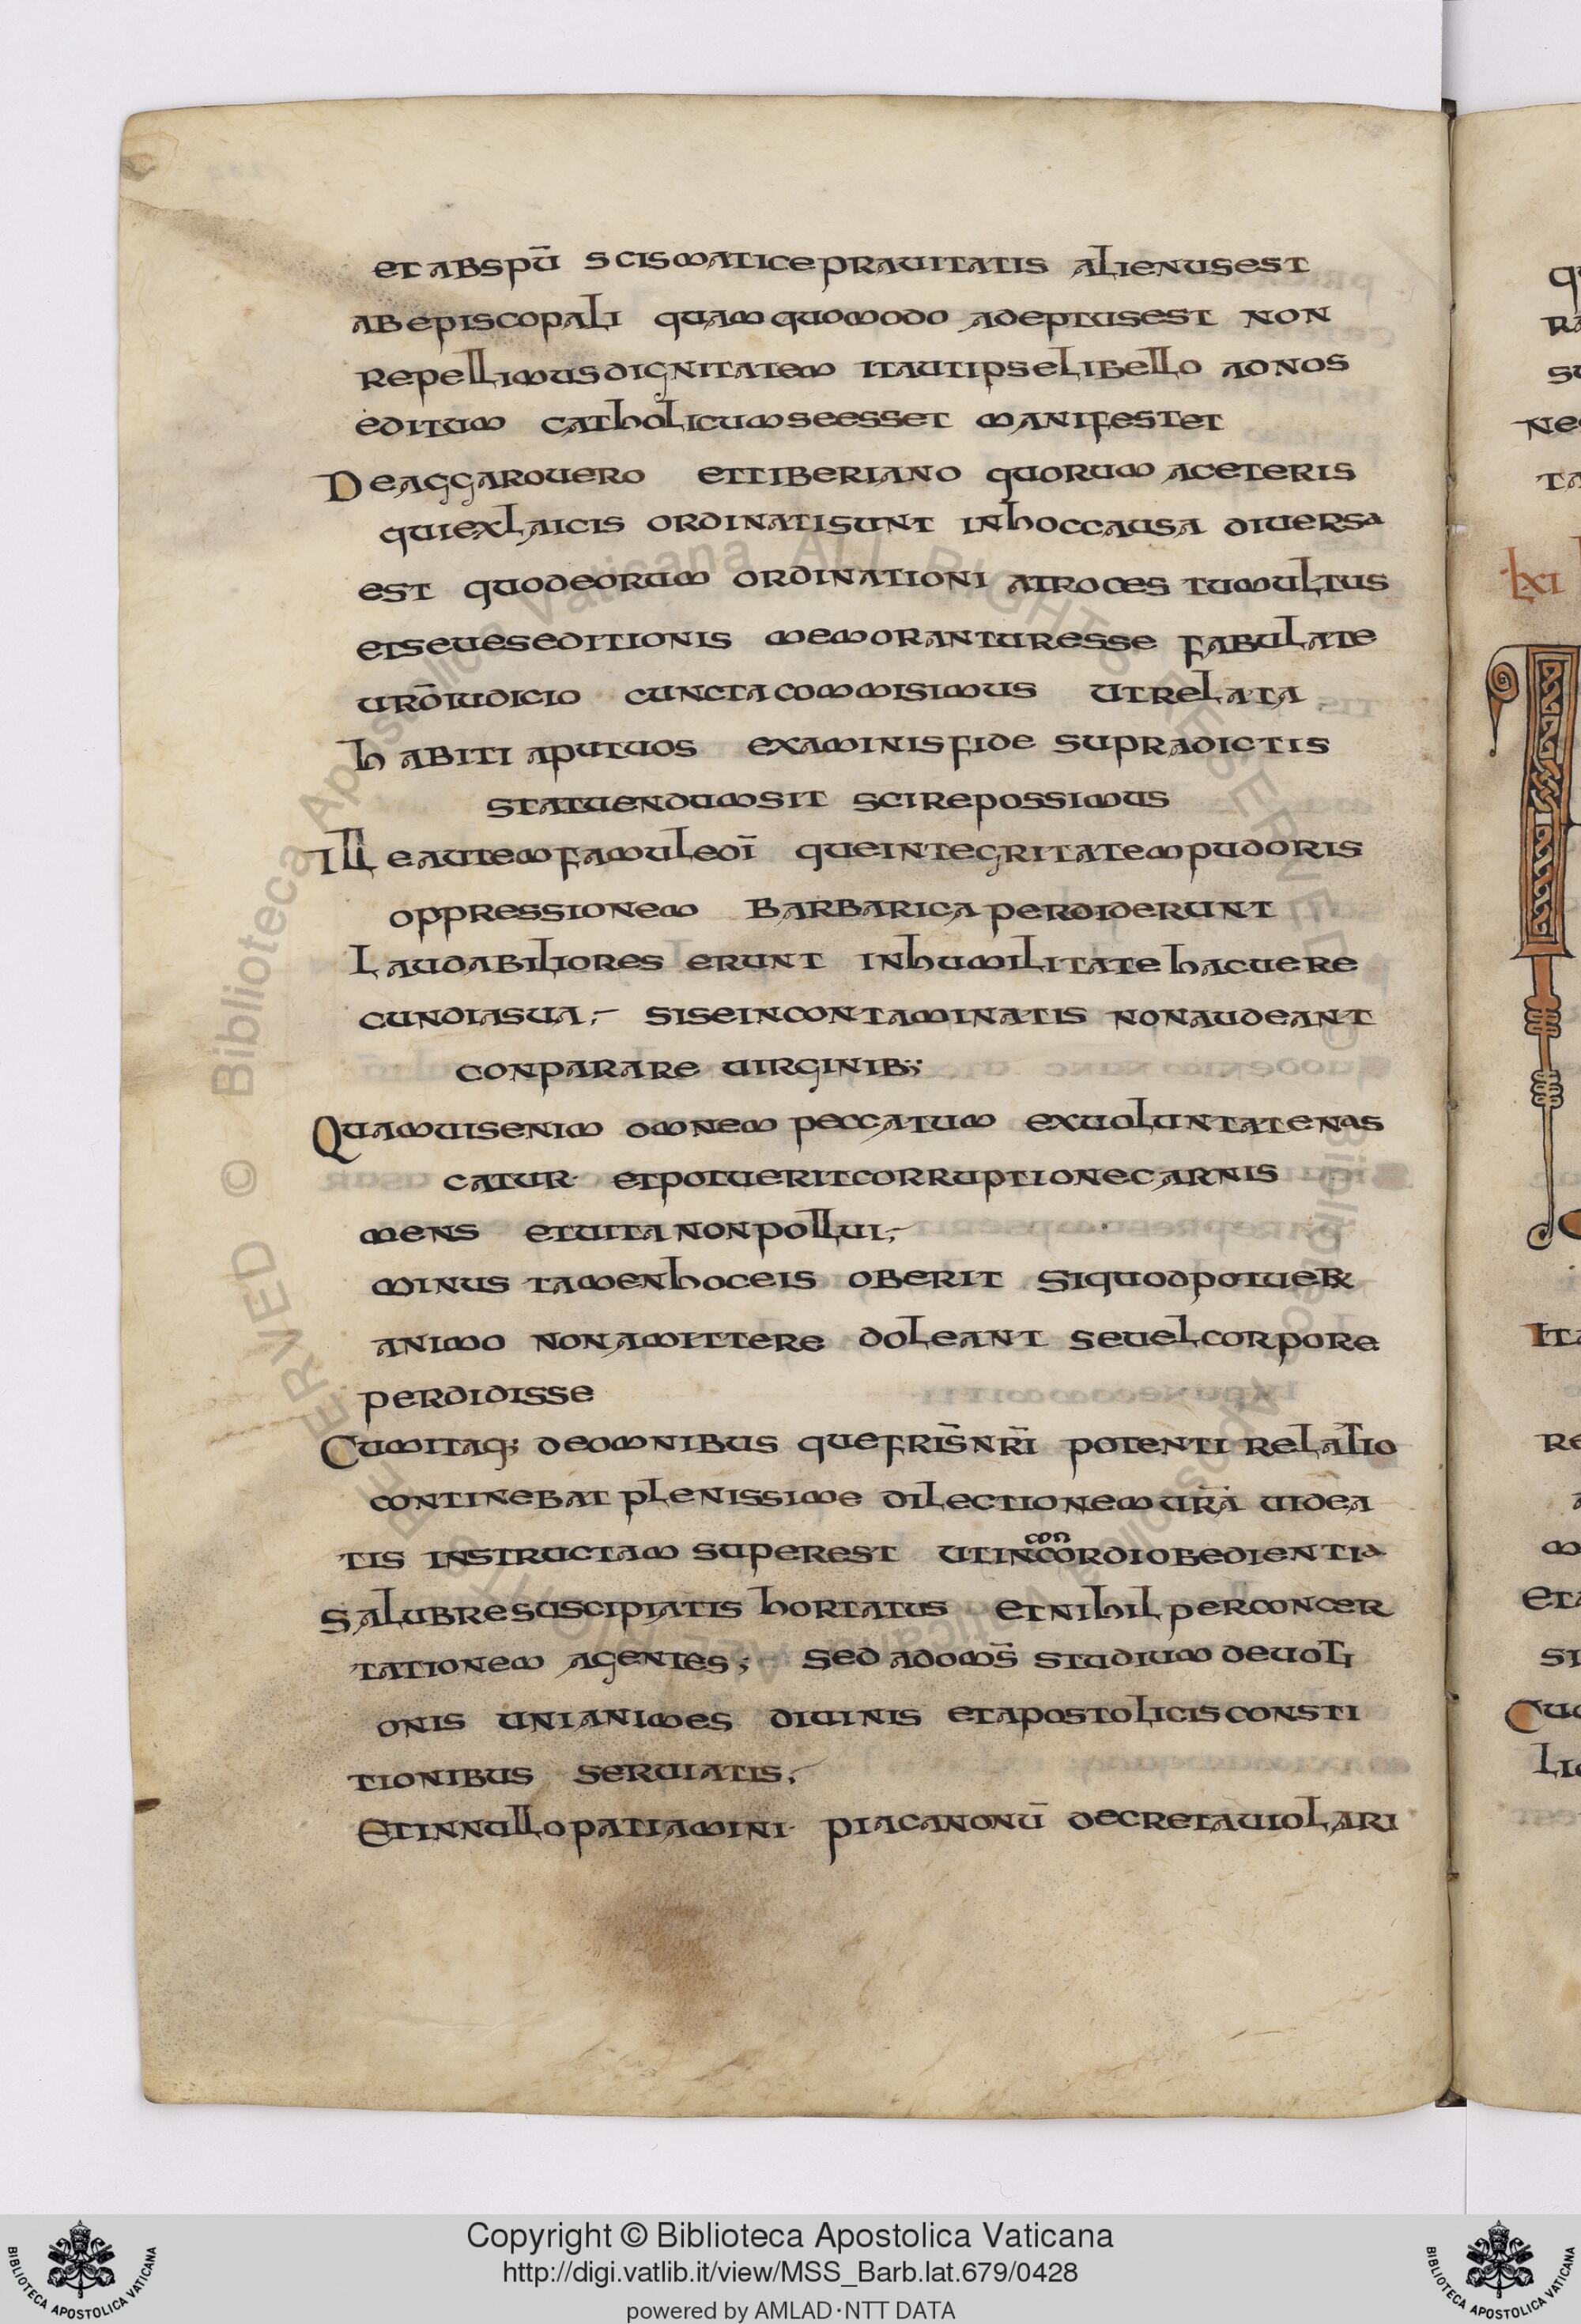 et abspū scismatice prauitatis alienus est
ab episcopali quam quomodo adeptus est non
repellimus dignitatem ita ut ipse libello ad nos
editum catholicum se esset manifestet
De aggaro uero et tiberiano quorum a ceteris
qui ex laicis ordinati sunt in hoc causa diuersa
est quod eorum ordinationi atroces tumultus
et seue seditionis memorantur esse fabulate
urō iudicio cuncta commisimus ut relata
habiti aput uos examinis fide supradictis
statuendum sit scire possimus
Ille autem famule dī que integritatem pudoris
oppressionem barbarica perdiderunt
Laudabiliores erunt in humilitate hac uere
cundia sua,- si se incontaminatis non audeant
conparare uirginib;;
Quamuis enim omnem peccatum ex uoluntate nas
catur· et potuerit corruptione carnis
mens et uita non pollui,-
minus tamen hoc eis oberit si quod potuer
animo non amittere doleant se uel corpore
perdidisse
Cum itaq; de omnibus que fris̄ nrī potenti relatio
continebat plenissime dilectionem urā uidea
tis instructam superest ut in con
cordi obedientia
salubre suscipiatis hortatus et nihil per concer
tationem agentes; sed ad oms̄ studium deuoti
onis unianimes diuinis et apostolicis consti
tionibus seruiatis,
Et in nullo patiamini· pia canonū decreta uiolari
Lxi
Copyright © Biblioteca Apostolica Vaticana
http://digi.vatlib.it/view/MSS_Barb.lat.679/0428
powered by AMLAD·NTT DATA
BIBLIOTECA APOSTOLICA VATICANA
BIBLIOTECA APOSTOLICA VATICANA